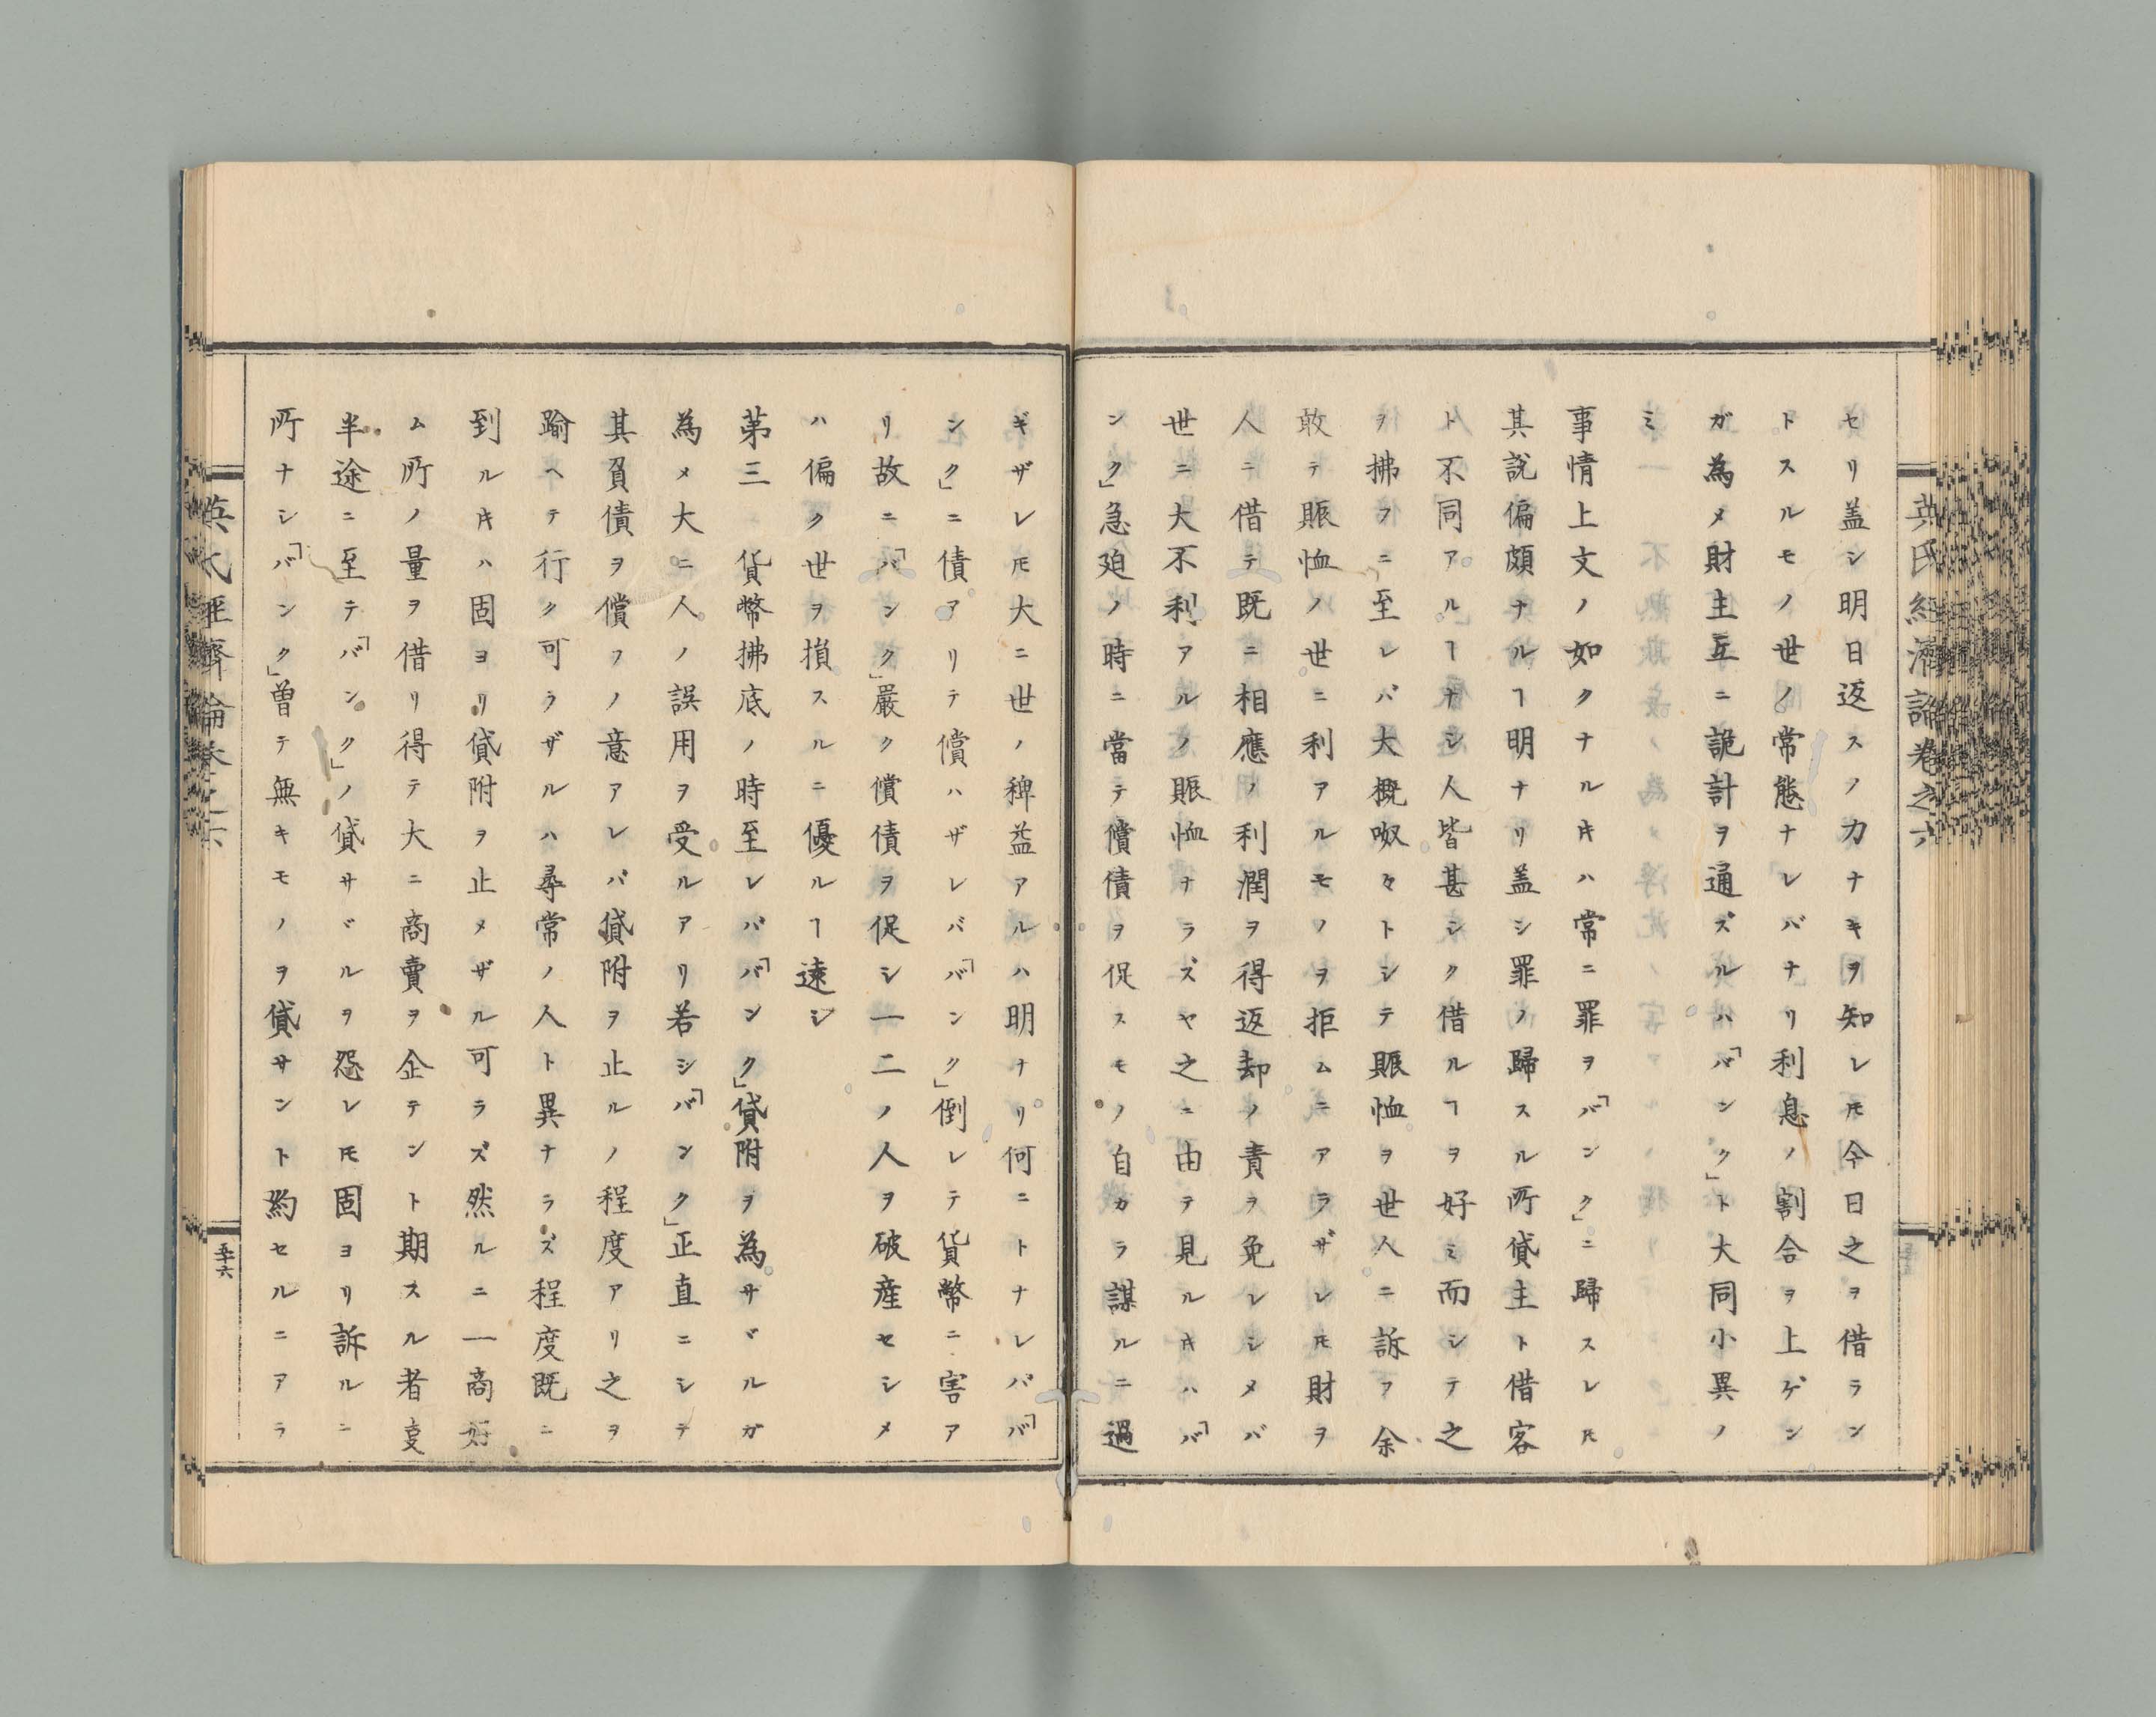 英氏經濟論卷之六
セリ盖シ明日返スノ力ナキヲ知レ𪜈今日之ヲ借ラン
トスルモノ世ノ常態ナレバナリ利息ノ割合ヲ上ゲン
ガ為メ財主互ニ詭計ヲ通ズルハ「バンク」ト大同小異ノ
ミ
事情上文ノ如クナルキハ常ニ罪ヲ「バンク」ニ歸スレ𪜈
其說偏頗ナルヿ明ナリ盖シ罪ノ歸スル所貸主ト借客
ト不同アルヿナシ人皆甚シク借ルヿヲ好ミ而シテ之
ヲ拂フニ至レバ大概呶々トシテ賑恤ヲ世人ニ訴フ余
敢テ賑恤ノ世ニ利アルモノヲ拒ムニアラザレ𪜈財ヲ
人ニ借テ既ニ相應ノ利潤ヲ得返却ノ責ヲ免レシメバ
世ニ大不利アルノ賑恤ナラズヤ之ニ由テ見ルキハ「バ
ンク」急廹ノ時ニ當テ償債ヲ促スモノ自カラ謀ルニ過
ギザレ𪜈大ニ世ノ稗益アルハ明ナリ何ニトナレバ「バ
ンク」ニ債アリテ償ハザレバ「バンク」倒レテ貨幣ニ害ア
リ故ニ「バンク」嚴ク償債ヲ促シ一二ノ人ヲ破産セシメ
ハ偏ク世ヲ損スルニ優ルヿ遠シ
第三　貨幣拂底ノ時至レバ「バンク」貸附ヲ為サヾルガ
為メ大ニ人ノ誤用ヲ受ルアリ若シ「バンク」正直ニシテ
其負債ヲ償フノ意アレバ貸附ヲ止ルノ程度アリ之ヲ
踰ヘテ行ク可ラザルハ尋常ノ人ト異ナラズ程度既ニ
到ルキハ固ヨリ貸附ヲ止メザル可ラズ然ルニ一商好
ム所ノ量ヲ借リ得テ大ニ商賣ヲ企テント期スル者事
半途ニ至テ「バンク」ノ貸サヾルヲ怨レ𪜈固ヨリ訴ルニ
所ナシ「バンク」曽テ無キモノヲ貸サント約セルニアラ
英氏經濟論卷之六
五十六